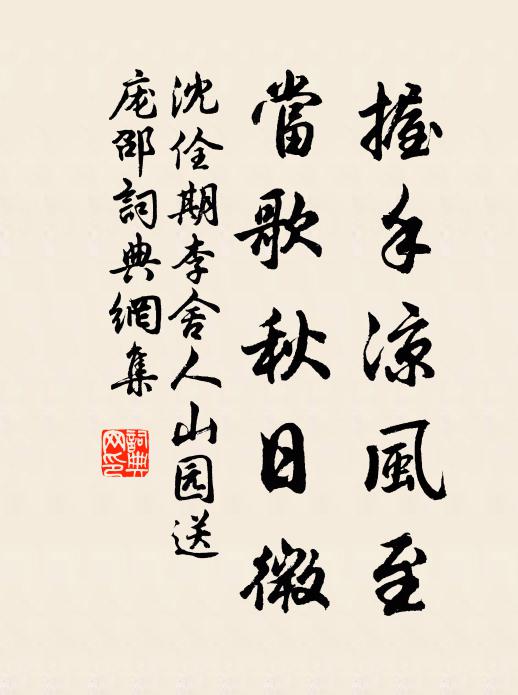 握手凉風至
當歌秋日微
沈佺期李舍人山园送
庞邵詞典網集
詞典
网印